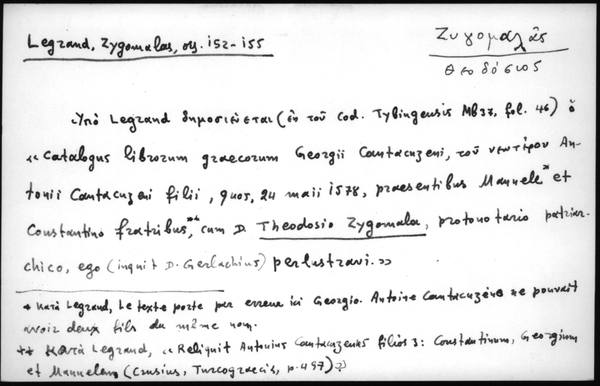 Legrand, Zygomalas, σσ. 152-155
Ζυγομαλᾶς
Θεοδόσιος
Ὑπὸ Legrand δημοσιεύεται (ἐκ τοῦ Cod. Tybingensis Mb 37, fol. 46) ὁ
«Catalogus librorum graecorum Georgii Cantacuzeni, τοῦ νεωτέρου An-
tonii Cantacuzeni filii, quos, 24 maii 1578, praesentibus Manuele* et
Constantino fratribus,** cum D. Theodosio Zygomala, protonotario patriar-
chico, ego (inquit D. Gerlachius) perlustravi.»
* Κατὰ Legrand, Le texte porte par erreur ici Georgio. Antoine Cantacuzène ne pouvait
avoir deux fils du même nom.
** Κατὰ Legrand, «Reliquit Antonius Cantacuzenus filios 3: Constantinum, Georgium
et Manuelem (Crusius, Turcograecia, p. 497)»